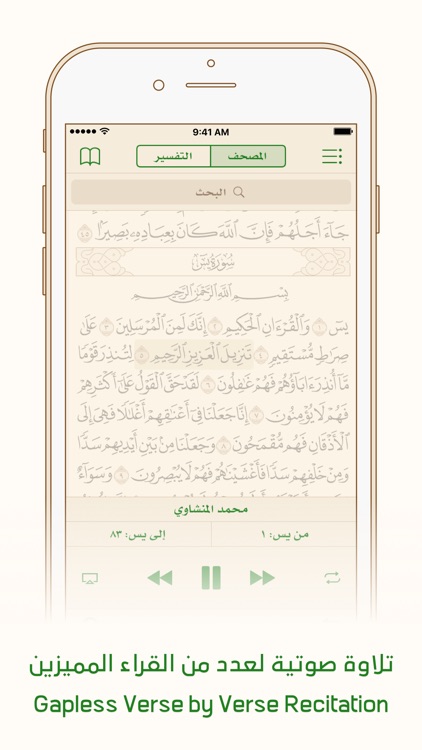 9:41 AM
المصحف التفسير
البحث
جَآءَ أَجَلُهُمْ فَإِنَّ ٱللَّهَ كَانَ بِعِبَادِهِۦ بَصِيرًۢا ٤٥
سُورَةُ يسٓ
بِسْمِ ٱللَّهِ ٱلرَّحْمَٰنِ ٱلرَّحِيمِ
يسٓ ١ وَٱلْقُرْءَانِ ٱلْحَكِيمِ ٢ إِنَّكَ لَمِنَ ٱلْمُرْسَلِينَ ٣ عَلَىٰ
صِرَٰطٍ مُّسْتَقِيمٍ ٤ تَنزِيلَ ٱلْعَزِيزِ ٱلرَّحِيمِ ٥ لِتُنذِرَ قَوْمًا
مَّآ أُنذِرَ ءَابَآؤُهُمْ فَهُمْ غَٰفِلُونَ ٦ لَقَدْ حَقَّ ٱلْقَوْلُ عَلَىٰٓ أَكْثَرِهِمْ
فَهُمْ لَا يُؤْمِنُونَ ٧ إِنَّا جَعَلْنَا فِىٓ أَعْنَٰقِهِمْ أَغْلَٰلًا فَهِىَ إِلَى
ٱلْأَذْقَانِ فَهُم مُّقْمَحُونَ ٨ وَجَعَلْنَا مِنۢ بَيْنِ أَيْدِيهِمْ سَدًّا
وَمِنْ خَلْفِهِمْ سَدًّا فَأَغْشَيْنَٰهُمْ فَهُمْ لَا يُبْصِرُونَ ٩ وَسَوَآءٌ
محمد المنشاوي
من يس: ١ إلى يس: ٨٣
تلاوة صوتية لعدد من القراء المميزين
Gapless Verse by Verse Recitation